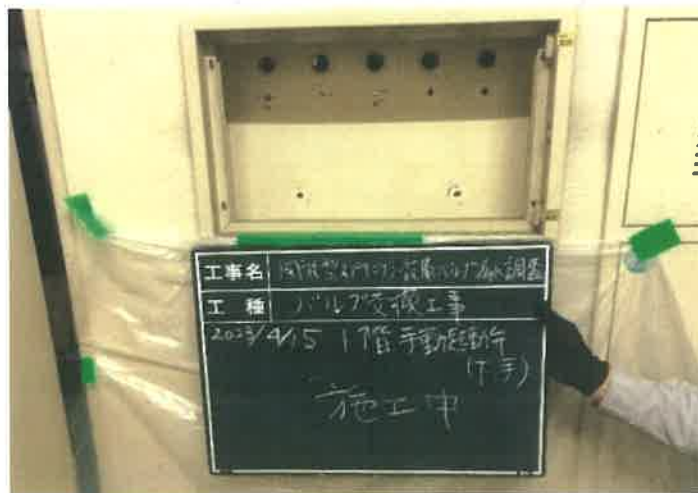 工事名 開放型スプリンクラー設備バルブ漏水調査
工種 バルブ交換工事
2023/4/15 1階手動起動弁
(下手)
施工中